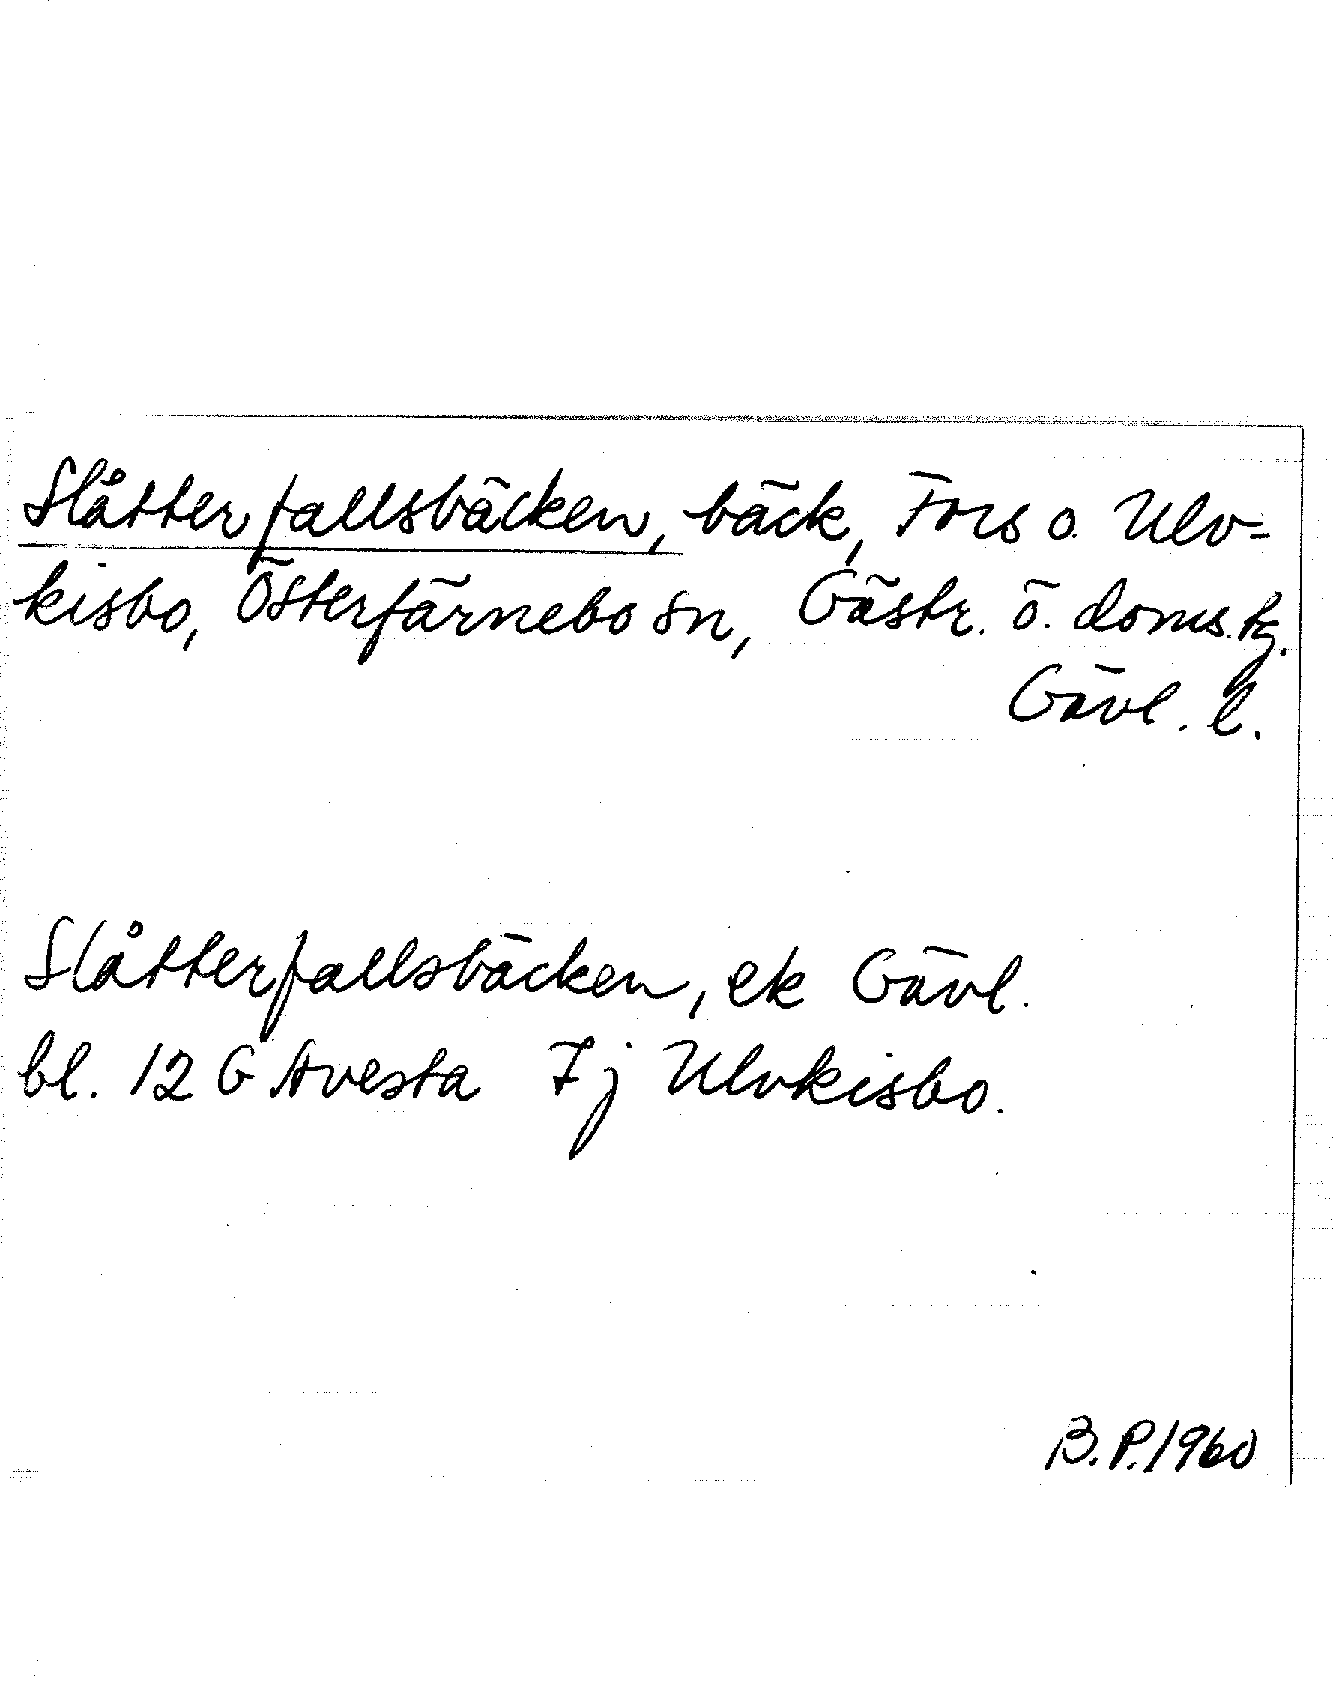 Slåtterfallsbäcken, bäck, Fors o. Ulv-
kisbo, Österfärnebo sn, Gästr. ö. doms. tg.
Gävl. l.
Slåtterfallsbäcken, ek Gävl.
bl. 12 G Avesta 7 j Ulvkisbo.
B.P. 1960